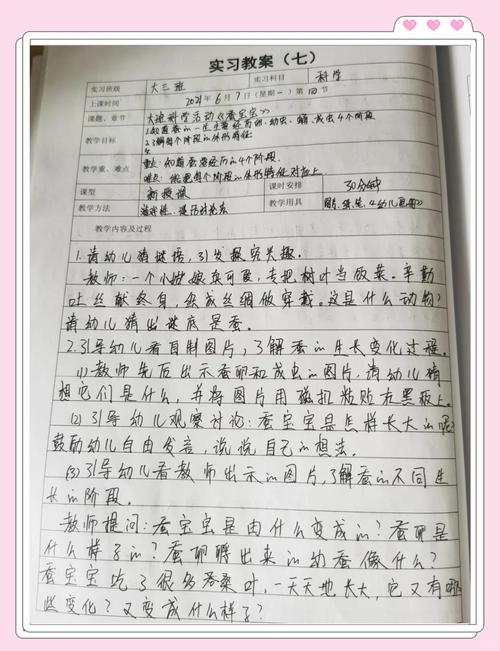 实习教案（七）
实习班级 大三班 实习科目 科学
上课时间 2021年6月7日（星期一）第1四节
课题、章节 大班科学活动《蚕宝宝》
教学目标 1.知道蚕的一生主要经历卵、幼虫、蛹、成虫4个阶段
2.了解每个阶段的外形特征
教学重、难点 重点：知道蚕要经历的4个阶段。
难点：能把每个阶段的外形特征对应上
课型 新授课 课时安排 30分钟
教学方法 游戏性、提问讨论法 教学用具 图片、纸、笔、《幼儿画册》
教学内容及过程
1.请幼儿猜谜语，引发探究兴趣。
教师：一个小姑娘真可爱，专把树叶当饭菜。辛勤
吐丝献终身，丝成丝绸做穿戴。这是什么动物？
请幼儿猜出谜底是蚕。
2.引导幼儿看自制图片，了解蚕的生长变化过程。
(1)教师先后出示蚕卵和成虫的图片，请幼儿猜
想它们是什么，并将图片用磁扣粘贴在黑板上。
(2)引导幼儿观察讨论：蚕宝宝是怎样长大的呢？
鼓励幼儿自由发言，说说自己的想法。
(3)引导幼儿看教师出示的图片，了解蚕的不同生
长的阶段。
教师提问：蚕宝宝是由什么变成的？蚕卵是
什么样子的？蚕卵孵出来的幼蚕像什么？
蚕宝宝吃了很多桑叶，一天天地长大，它又有哪
些变化？又变成什么样了？